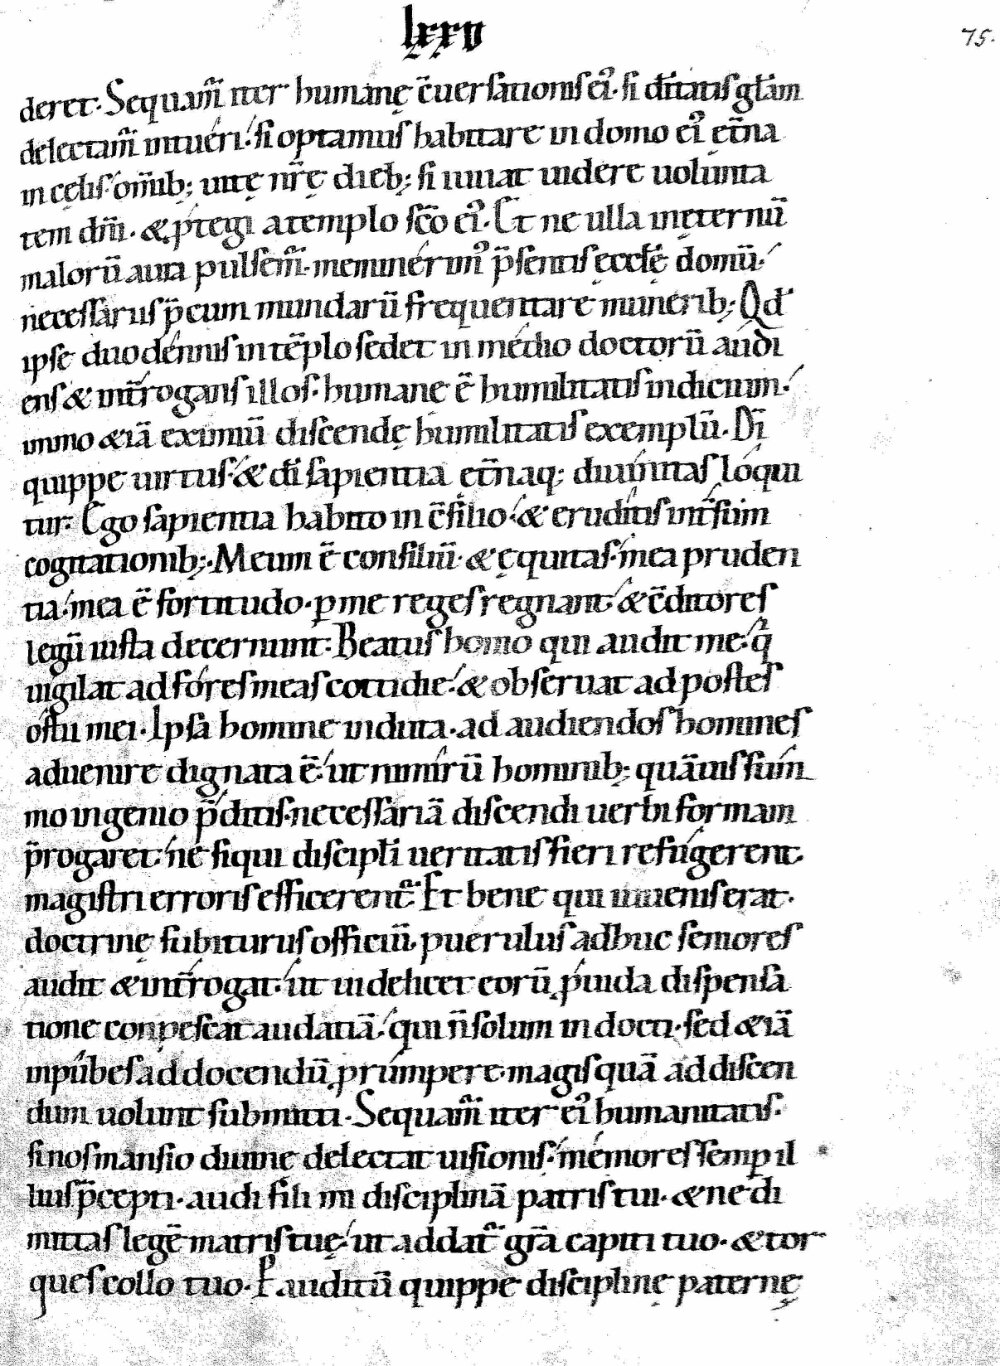 lxxv
75.
deret. Sequam̃ iter humanę c̃uersationis ei᾽. si diƚtatis gƚam
delectam̃ intuéri. si optamus habitare in domo ei᾽ ęt̃na
in cęlis. om̃ib; uitę nr̃ę dieb; si iuuat uidere uolunta
tem dm̃i. & p̾tegi a templo sc̃o ei᾽. Et ne ulla in ęternū
malorū aura pulsem̃. meminérim᾽ p̃sentis ęccƚę domū.
necessarus p̃cum mundarū frequentare munerib; Qd
ipse duodennis in tēplo sedet in médio doctorū audi
ens & int̃rogans illos. humane ē humilitatis indicium.
immo &iā eximiū discendę humilitatis exemplū. Dī
quippe uirtus. & dī sapientia ęt̃naq; diuinitas lóqui
tur. Ego sapientia habito in c̃silio. & eruditis int̃sum
cogitationib;. Meum ē consiliū. & ęquitas. mea pruden
tia. mea ē fortitudo. ꝑ me reges regnant. & c̃ditores
legū iusta decernunt. Beatus homo qui audit me. q̾
uigilat ad fóres meas cottidie. & obseruat ad postes
ostii mei. Ipsa homine induta. ad audiendos homines
aduenire dignata ē. ut nimirū hominib; quāuis sum
mo ingenio p̃ditis. necessariā discendi uerbi formam
p̃rogaret. ne si qui discipƚi ueritatis fieri refúgerent.
magistri erroris efficerent᾽. Et bene qui iuuenis erat.
doctrinę subiturus officiū. puerulus adhuc seniores
audit & int̃rogat. ut uidelicet eorū p̾uida dispensa
tione conpescat audatiā. qui ñ solum indocti. sed &iā
inpúbes ad docendū prúmpere. magis quā ad discen
dum uolunt submitti. Sequam̃ iter ei᾽ humanitatis.
si nos mansio diuinę delectat uisionis. mémores semp il
lius p̃cepti. audi fili mi disciplinā patris tui. & ne di
mittas legē matris tuę. ut addat᾽ gr̃a capiti tuo. & tor
ques collo tuo. P auditū quippe disciplinę paternę